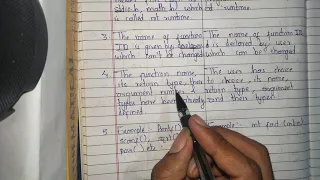 stdio.h, math.h which at runtime.
is called at runtime.
3. The name of function The name of function
is given by is declared by user
which can't be changed which can be changed
4. The function name, The user has choice
its return type, to choose its name,
argument number & return type, argument
types have been already and their types
defined
5. Example: Printf() Example:- int fact(int a)
scanf(), sqrt()
pow() etc.